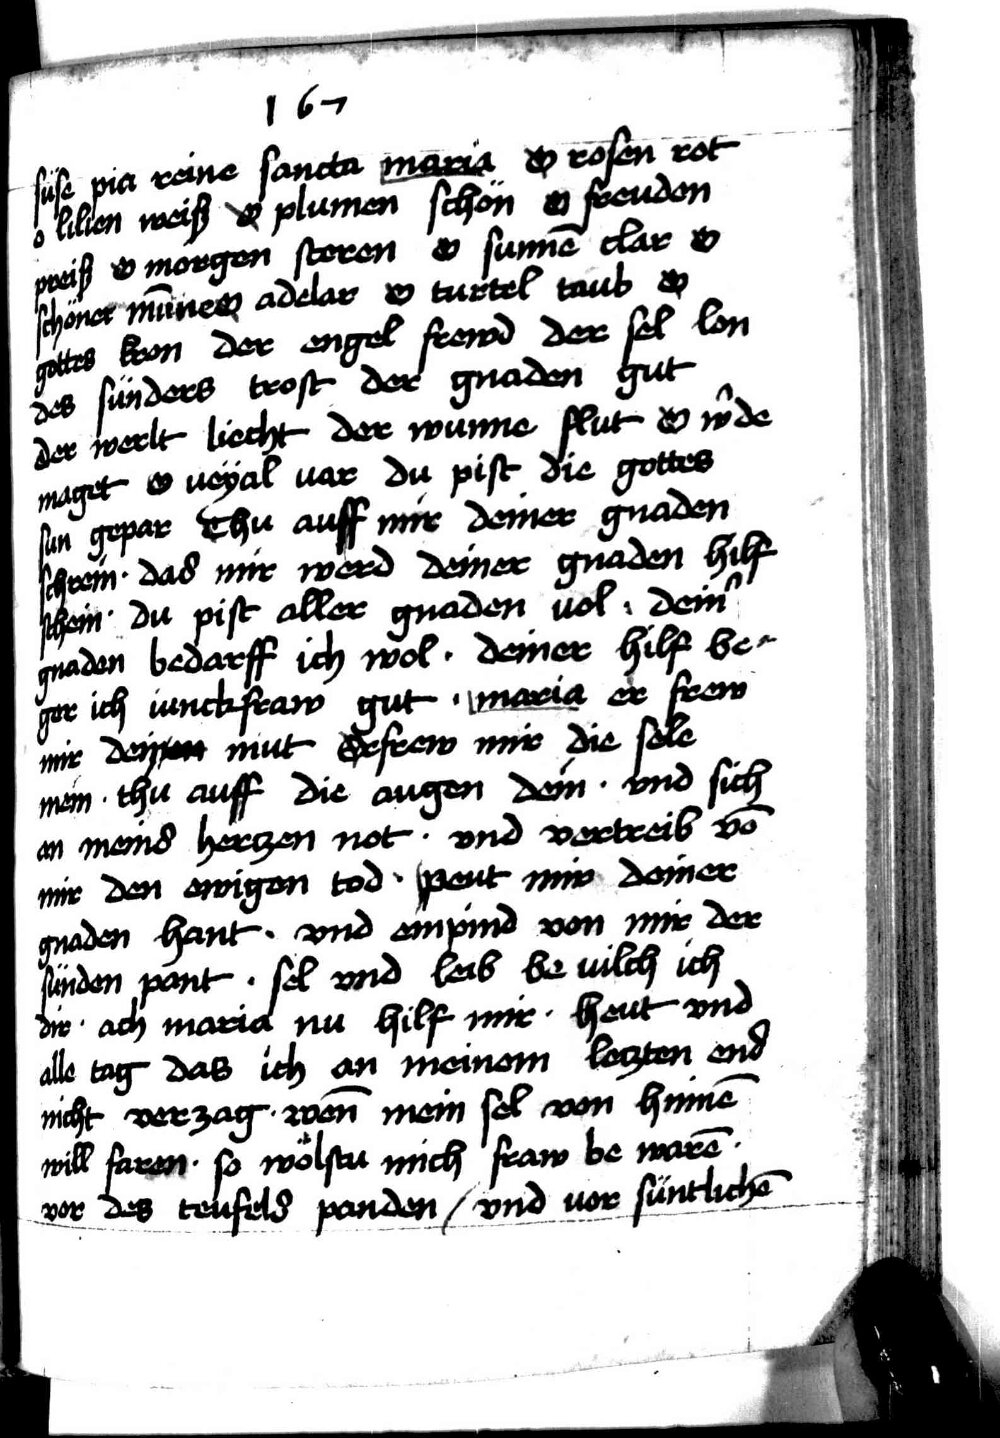 167
süse pia reine sancta maria O rosen rot
o lilien weiß O plumen schön O freuden
preiß O morgen steren O sunnē clar O
schöner mūne O adelar O turtel taub O
gottes kron der engel frewd der sel lon
des sünders trost der gnaden gut
der werlt liecht der wunne flut O wͦde
maget O veyal var du pist die gottes
sun gepar Thu auff mir deiner gnaden
schrein · das mir werd deiner gnaden hilf
schein · du pist aller gnaden vol · dein͛
gnaden bedarff ich wol · deiner hilf be-
ger ich iunckfraw gut · maria er frew
mir deinen mut Erfrew mir die sele
mein · thu auff die augen dein · vnd sich
an meins hertzen not · vnd vertreib vō
mir den ewigen tod · Peut mir deiner
gnaden hant · vnd enpind von mir der
sünden pant · sel vnd leib be vilch ich
dir · ach maria nu hilf mir · heut vnd
alle tag das ich an meinem letzten end
nicht verzag · wen̄ mein sel von hinnē
will faren · so wölstu mich fraw be warē ·
vor des teufels panden / vnd vor süntlichē